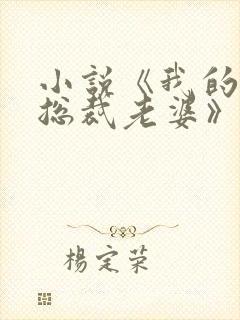 小說《我的
总裁老婆》
楊定荣